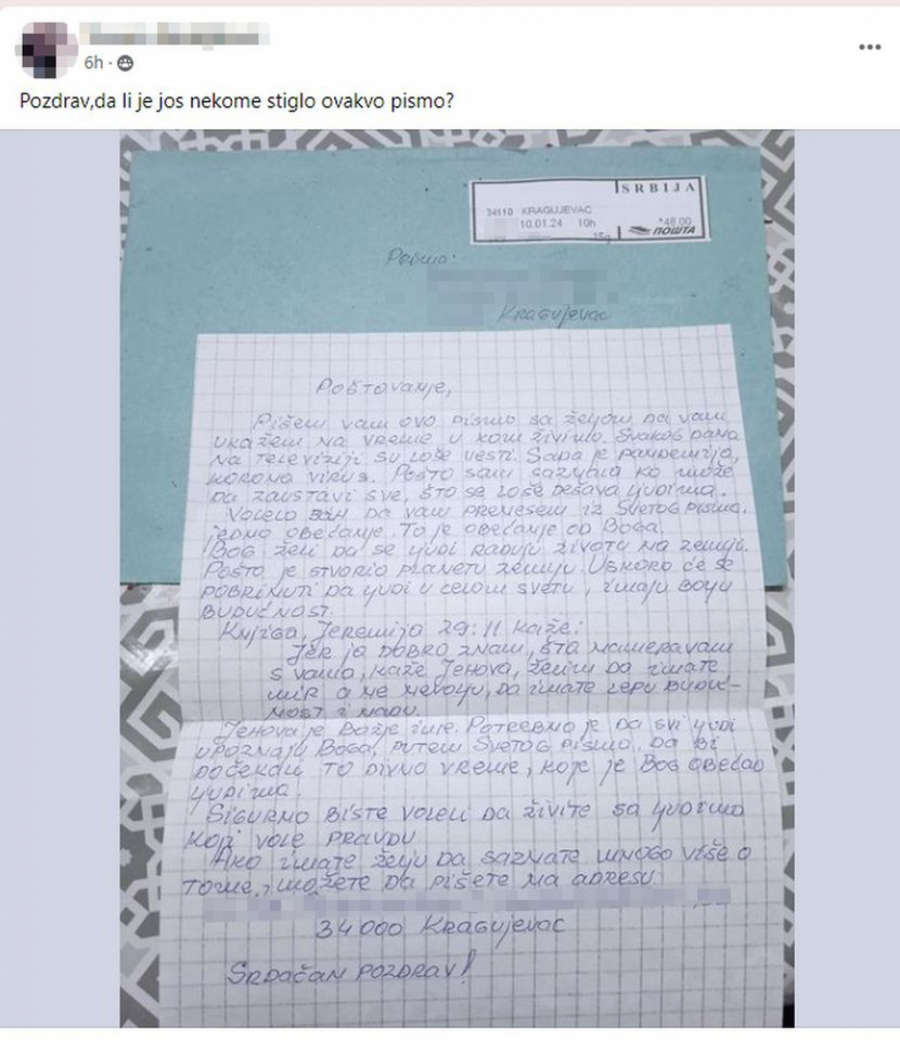 6h ·
Pozdrav,da li je jos nekome stiglo ovakvo pismo?
SRBIJA
34110 KRAGUJEVAC
10.01.24 10h
*48.00
15g
ПОШТА
Prima:
Kragujevac
Poštovanje,
Pišem vam ovo pismo sa željom da vam
ukažem na vreme u kom živimo. Svakog dana
na televiziji su loše vesti. Sada je pandemija,
korona virus. Pošto sam saznala ko može
da zaustavi sve, što se loše dešava ljudima.
Volela bih da vam prenesem iz Svetog pisma.
jedno obećanje. To je obećanje od Boga.
Bog želi da se ljudi raduju životu na zemlji.
Pošto je stvorio planetu zemlju. Uskoro će se
pobrinuti da ljudi u celom svetu, imaju bolju
budućnost.
Knjiga, Jeremija 29:11 kaže:
Jer ja dobro znam, šta nameravam
s vama, kaže Jehova, želim da imate
mir a ne nevolju, da imate lepu buduć-
nost i nadu.
Jehova je Božje ime. Potrebno je da svi ljudi
upoznaju Boga, putem Svetog pisma, da bi
dočekali to divno vreme, koje je Bog obećao
ljudima.
Sigurno biste voleli da živite sa ljudima
koji vole pravdu
Ako imate želju da saznate mnogo više o
tome, možete da pišete na adresu:
34000 Kragujevac
Srdačan pozdrav!